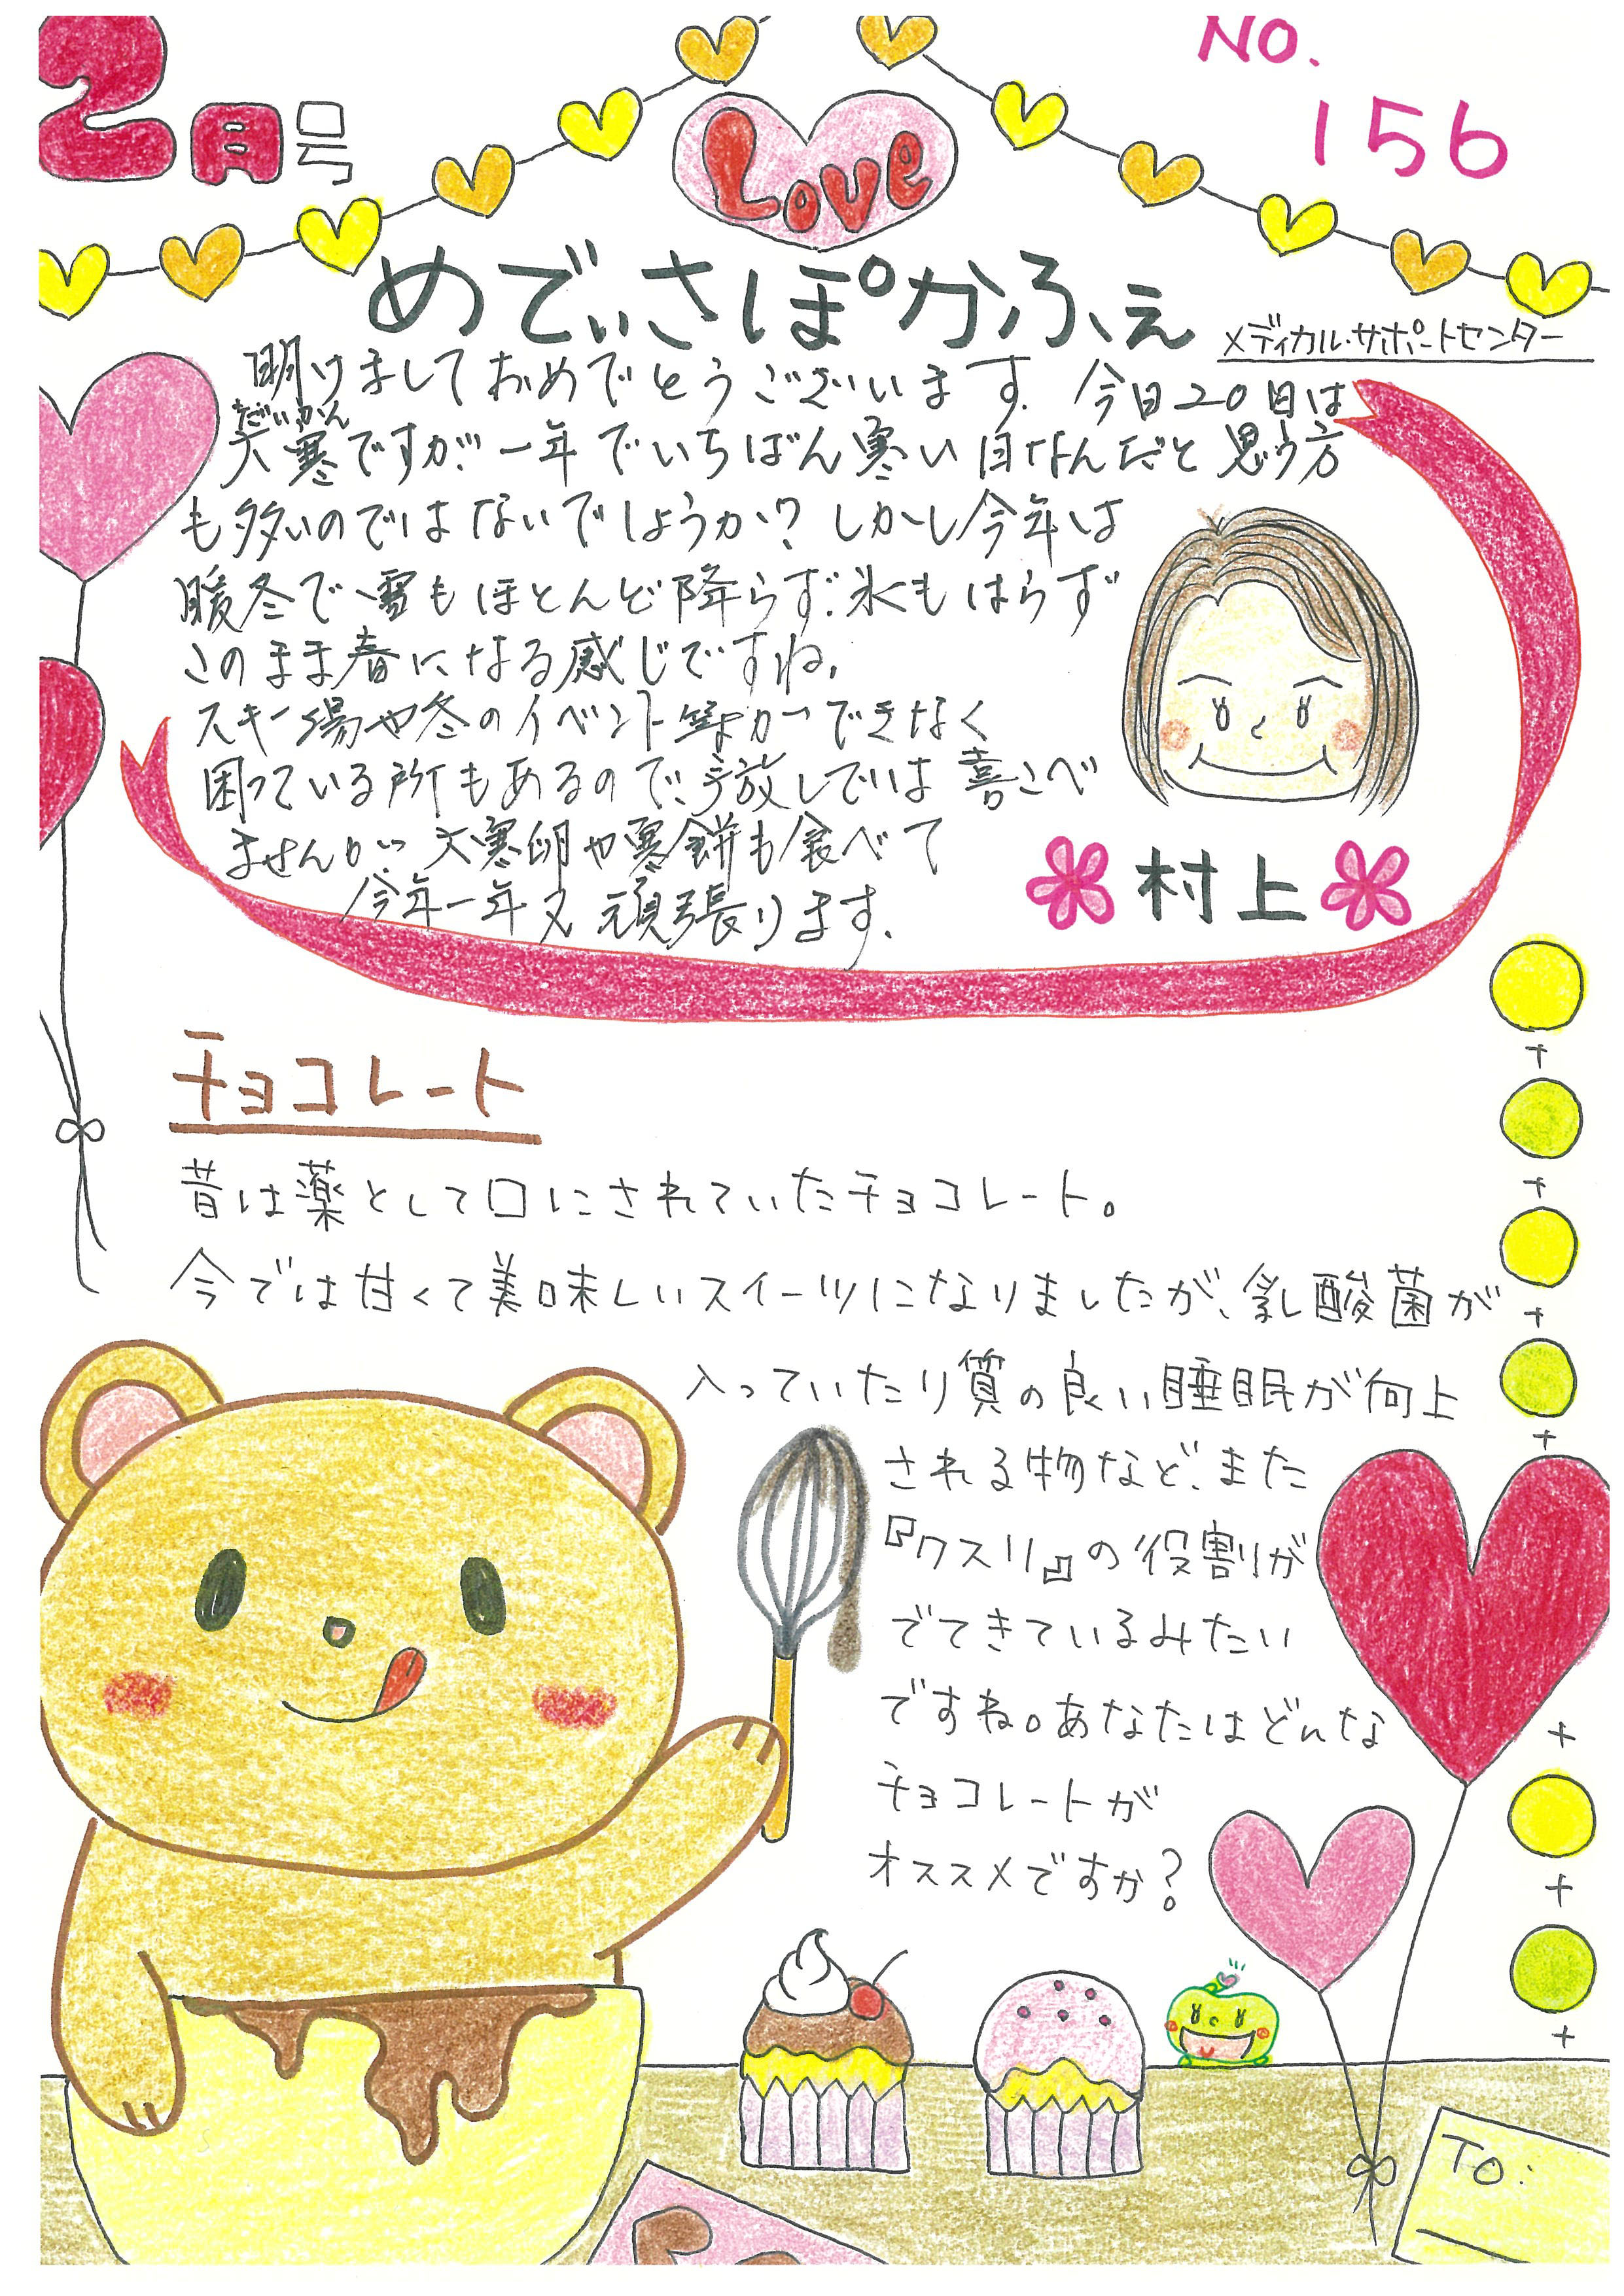 2月号
NO.
156
Love
めでぃさぽかふぇ
メディカル・サポートセンター
明けましておめでとうございます。今日20日は
だいかん
大寒ですが、一年でいちばん寒い日なんだと思う方
も多いのではないでしょうか?しかし今年は
暖冬で、雪もほとんど降らず、氷もはらず
このまま春になる感じですね。
スキー場や冬のイベント等が、できなく
困っている所もあるので、手放しでは喜こべ
ませんが、大寒卵や寒餅も食べて
今年一年又頑張ります。
村上
チョコレート
昔は薬として口にされていたチョコレート。
今では甘くて美味しいスイーツになりましたが、乳酸菌が
入っていたり質の良い睡眠が向上
される物など、また
『クスリ』の役割が
でてきているみたい
ですね。あなたはどんな
チョコレートが
オススメですか?
To: